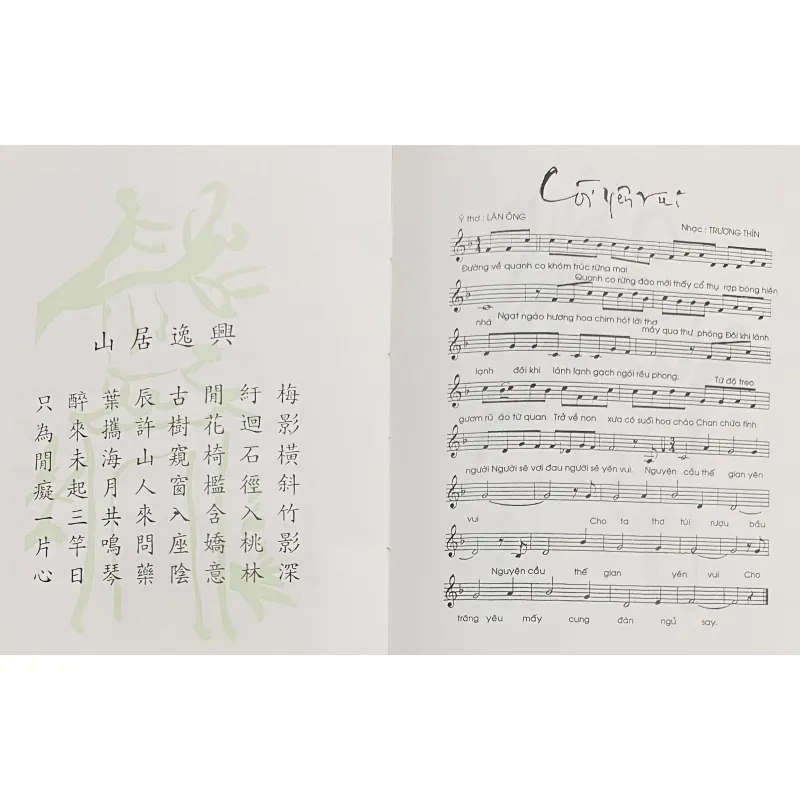 山居逸興
梅影橫斜竹影深
紆迴石徑入桃林
閒花椅檻含嬌意
古樹窺窗入座陰
辰許山人來問藥
葉攜海月共鳴琴
醉來未起三竿日
只為閒癡一片心
Cõi yên vui
Ý thơ : LÃN ÔNG
Nhạc : TRƯƠNG THÌN
Đường về quanh co khóm trúc rừng mai
Quanh co rừng đào mới thấy cổ thụ rợp bóng hiên
nhà Ngạt ngào hương hoa chim hót lời thơ
mấy qua thư phòng Đôi khi lành
lạnh đôi khi lành lạnh gạch ngói rêu phong. Từ độ treo
gươm rũ áo từ quan Trở về non xưa có suối hoa chào Chan chứa tình
người Người sẽ vơi đau người sẽ yên vui. Nguyện cầu thế gian yên
vui Cho ta thơ túi rượu bầu
Nguyện cầu thế gian yên vui Cho
trăng yêu mấy cung đàn ngủ say.